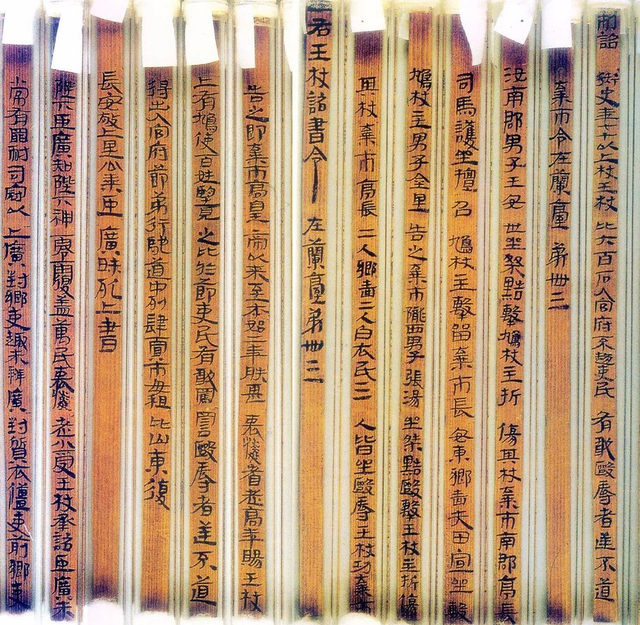 制詔御史年七十以上杖王杖比六百石入官府不趨吏民有敢毆辱者逆不道
棄市令在蘭臺第卌三
汝南郡男子王安世坐桀黠擊鳩杖主折傷其杖棄市南郡亭長
司馬護坐擅召鳩杖主擊留棄市長安東鄉嗇夫田宣坐毄
鳩杖主男子金里告之棄市隴西男子張湯坐桀黠毆擊王杖主折傷
其杖棄市亭長二人鄉嗇二人白衣民三人皆坐毆辱王杖功棄市
右王杖詔書令 在蘭臺第卌三
告之即棄市高皇帝以來至本始二年朕甚哀憐耆老高年賜王杖
上有鳩使百姓望見之比於節吏民有敢罵詈毆辱者逆不道
得出入官府節第行馳道中列肆賈市毋租比山東復
長安敬上里公乘臣廣昧死上書
陛下臣廣知陛下神零覆蓋萬民哀憐老小受王杖承詔臣廣未
常有罪耐司寇以上廣對鄉吏趣未辨廣對質衣僵吏前鄉吏